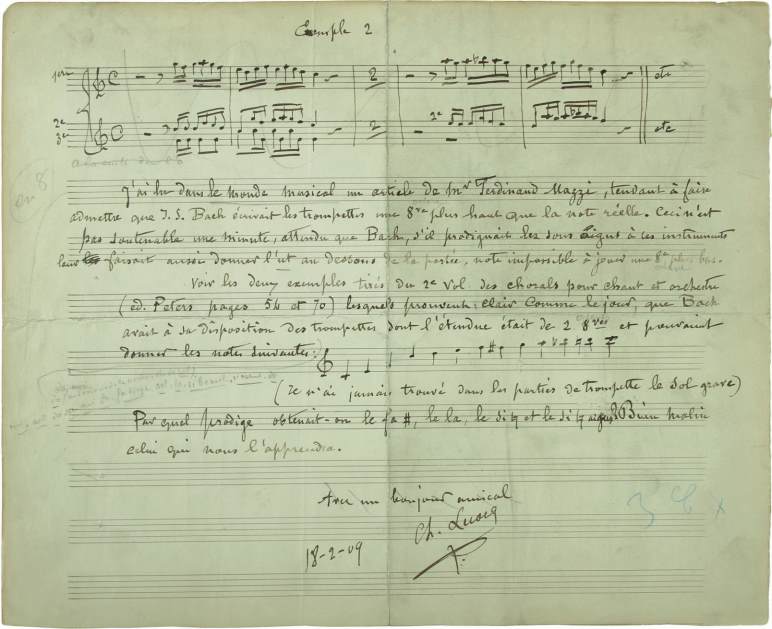 Exemple 2
1ere
etc
2e
3e
2
2
2e
etc
en 8
J'ai lu dans le Monde Musical un article de Mr Ferdinand Mazzi, tendant à faire
admettre que J. S. Bach écrivait les trompettes une 8ve plus haut que la note réelle. Ceci n'est
pas soutenable une minute, attendu que Bach, s'il prodiguait les sons aigus à ces instruments
leur faisait aussi donner l'ut au dessous de la portée, note impossible à jouer une 8e plus bas.
Voir les deux exemples tirés du 2e vol des chorals pour chant et orchestre
(ed. Peters pages 54 et 70) lesquels prouvent, clair comme le jour, que Bach
avait à sa disposition des trompettes dont l'étendue était de 2 8ves et pouvaient
donner les notes suivantes :
(Je n'ai jamais trouvé dans les parties de trompette le sol grave)
Par quel prodige obtenait-on le fa #, le la, le si ♮ et le si ♮ aigus? Bien malin
celui qui nous l'apprendra.
Avec un bonjour amical
Ch. Lecocq
18-2-09